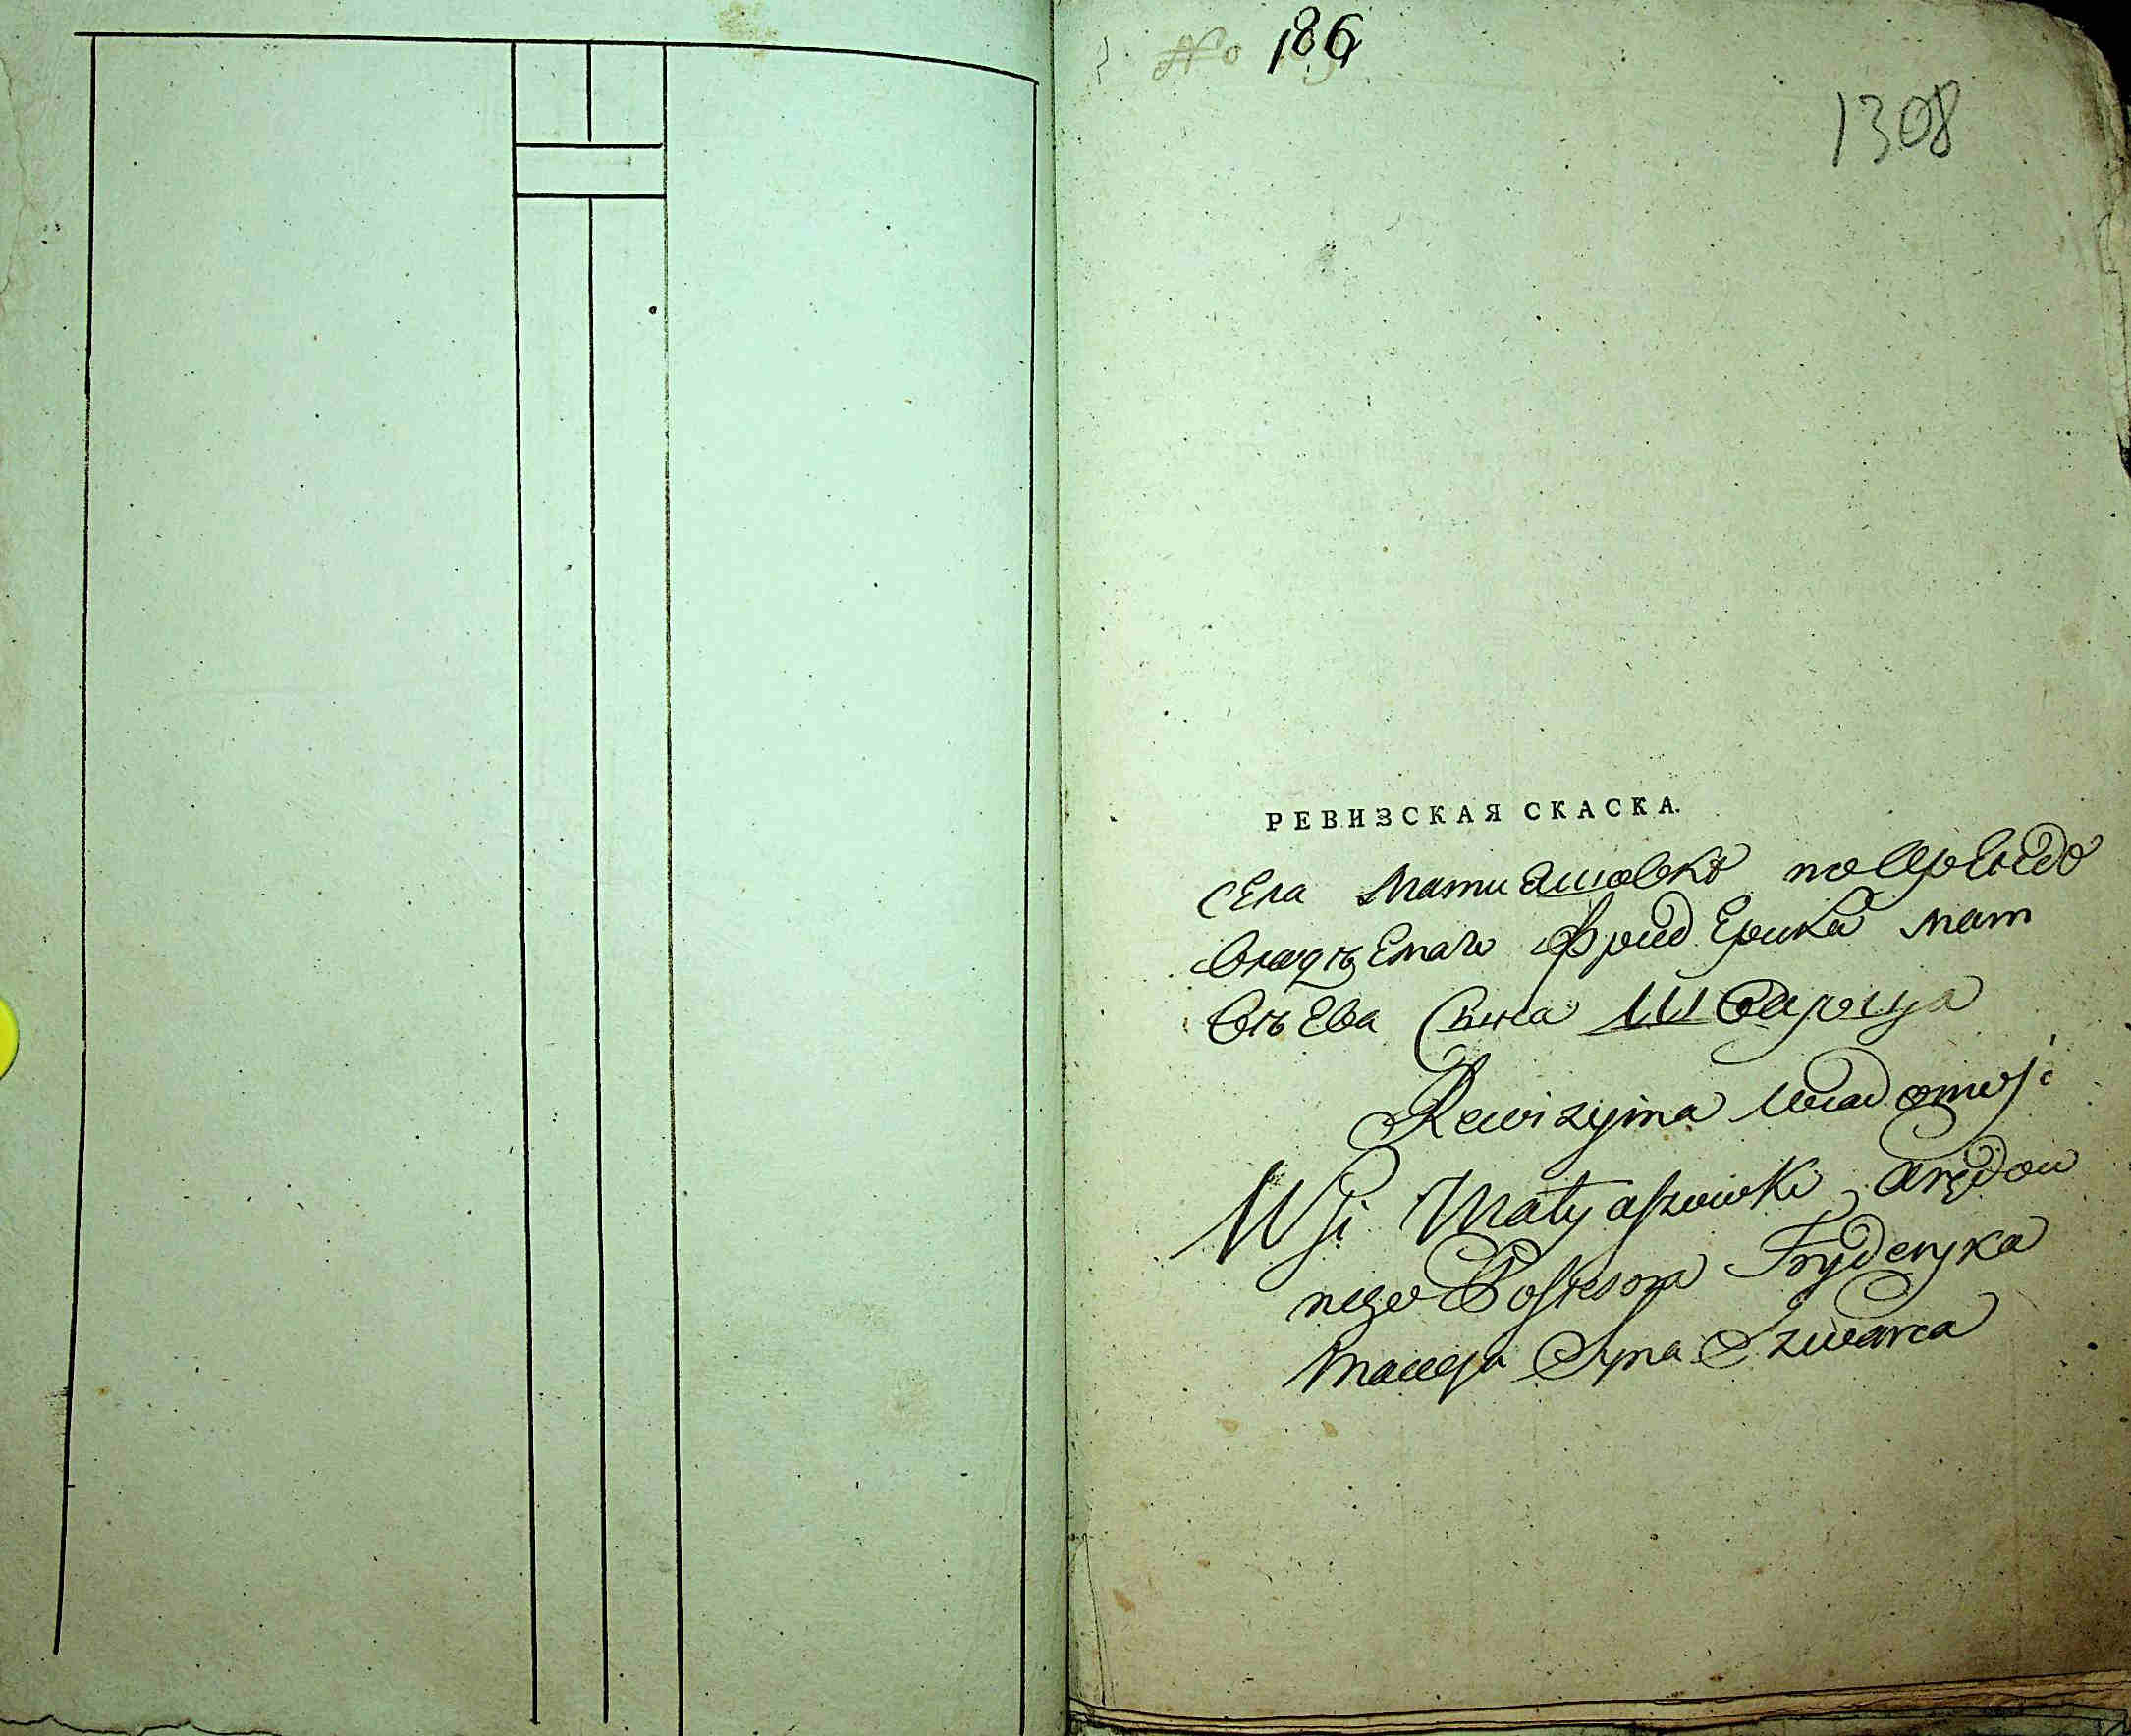 No 186
1308
РЕВИЗСКАЯ СКАСКА.
села Матиашовки
владѣемаго Фридерика Мат
вѣева сына Шварца
Rewizyina wiadomość
Wsi Matyaszowki Arędow
nego Possesora Fryderyka
Macieja Syna Szwarca